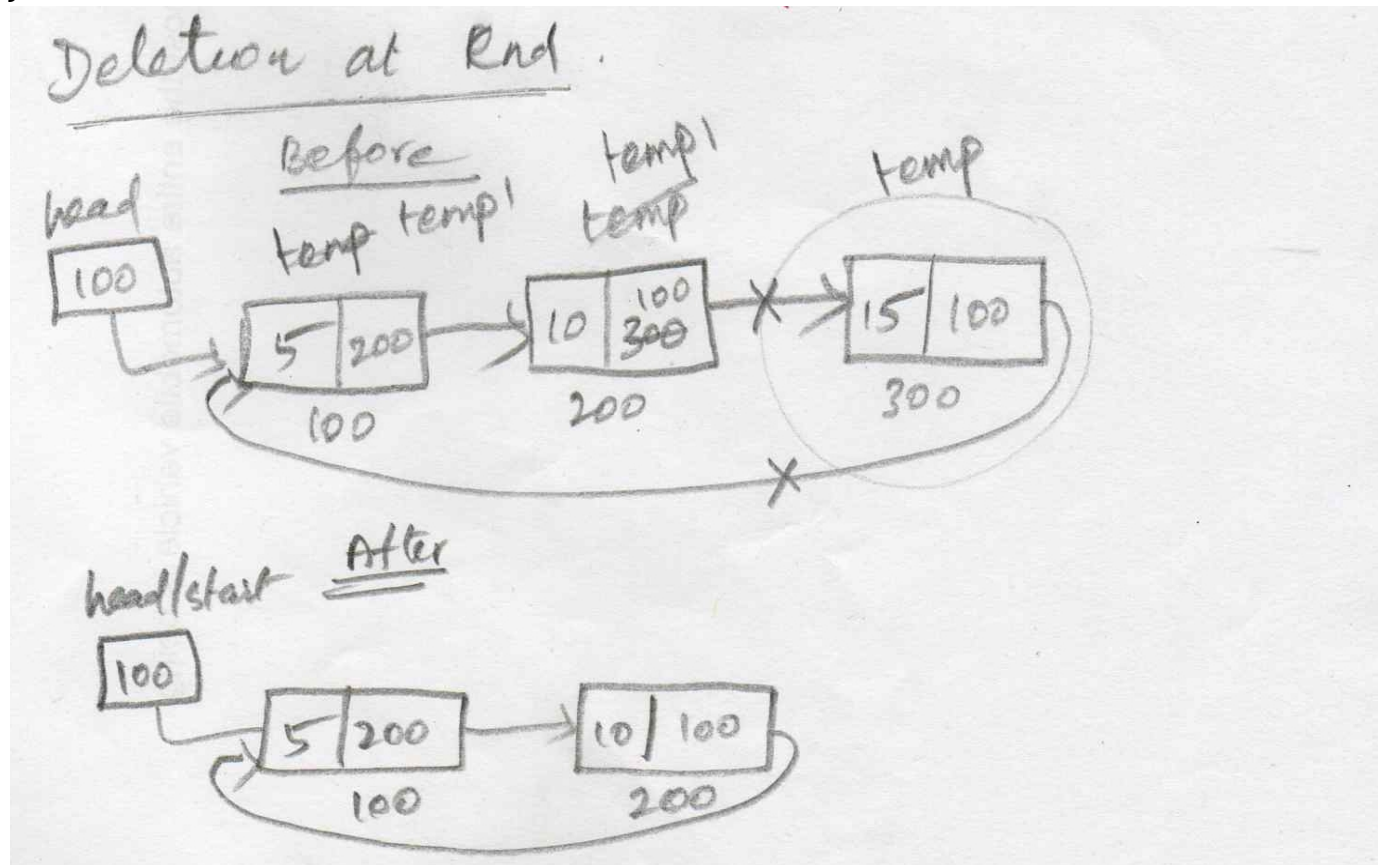 Deletion at End.
Before
head temp temp1 temp1 temp temp
100
5 200 10 100 300 15 100
100 200 300
head/start After
100
5 200 10 100
100 200